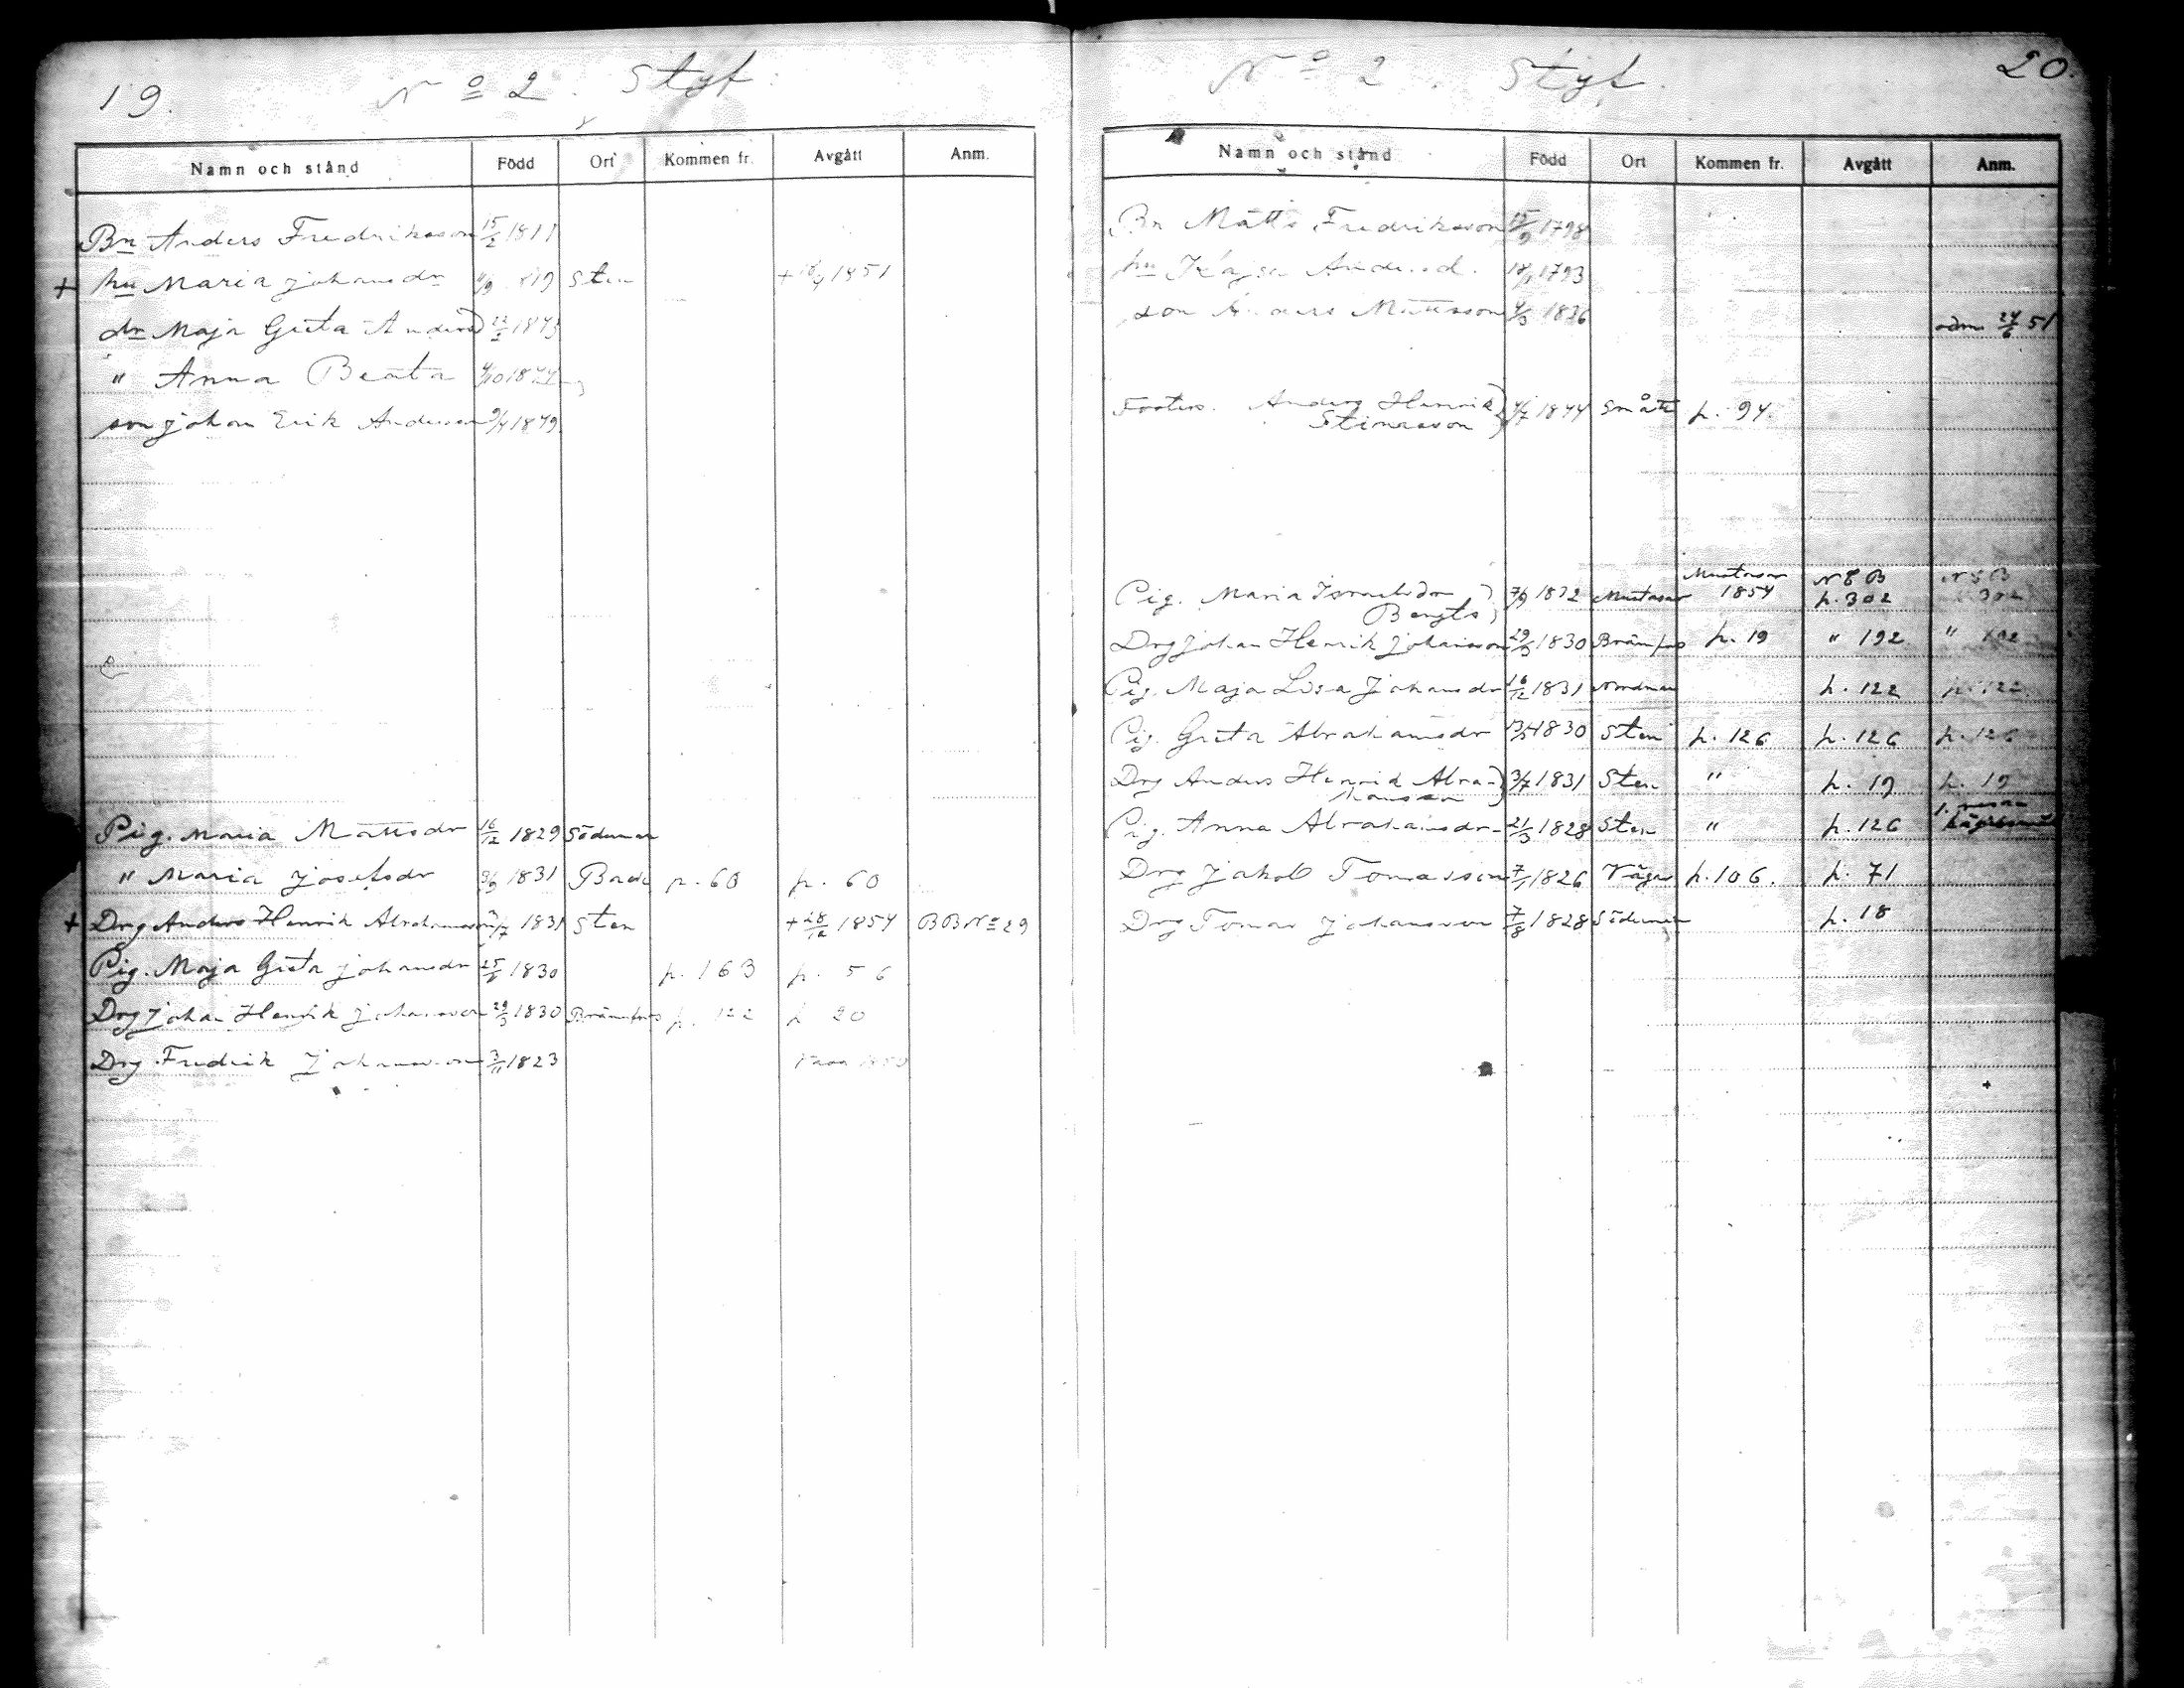 19. No 2. Styf.
Namn och stånd Född Ort Kommen fr. Avgått Anm.
Bn Anders Fredriksson 15/2 1811
+ hu Maria Johansdr 819 Sten + 1851
dr Maja Greta Andersd 1843
" Anna Beata 4/10 1847
son Johan Erik Andersson 9/4 1849
Pig. Maria Mattsdr 16/12 1829 Söderman
" Maria Josefsdr 3/9 1831 Back p. 60 p. 60
+ Drg Anders Henrik Abrahamsson 3/7 1831 Sten + 28/12 1854 BB No 29
Pig. Maja Greta Johansdr 25/6 1830 p. 163 p. 56
Drg Johan Henrik Johansson 29/3 1830 Brännfors p. 122 p 20
Drg. Fredrik Johansson 3/11 1823
No 2. Styf. 20.
Namn och stånd Född Ort Kommen fr. Avgått Anm.
Bn Matts Fredriksson 15/9 1798
hu Kajsa Andersd. 1793
son Anders Mattsson 4/3 1836
adm. 24/6 51
Fosters. Anders Henrik 4/7 1844 Smått p. 94.
Stinasson
Mustasar N 8 B N 8 B
Pig. Maria Israelsdr 7/9 1832 Mustasar 1854 p. 302 302
Bengts
Drg Johan Henrik Johansson 29/3 1830 Brännfors p. 19 " 192 " 192
Pig. Maja Lisa Johansdr 16/12 1831 Nordman p. 122 p. 122
Pig. Greta Abrahamsdr 1830 Sten p. 126 p. 126 p. 126
Drg Anders Henrik Abra- 3/7 1831 Sten " p. 19 p. 19
hamsson
Pig. Anna Abrahamsdr 21/3 1828 Sten " p. 126
Drg Jakob Tomasson 7/1 1826 Vägar p. 106. p. 71
Drg Tomas Johansson 7/8 1828 Söderman p. 18